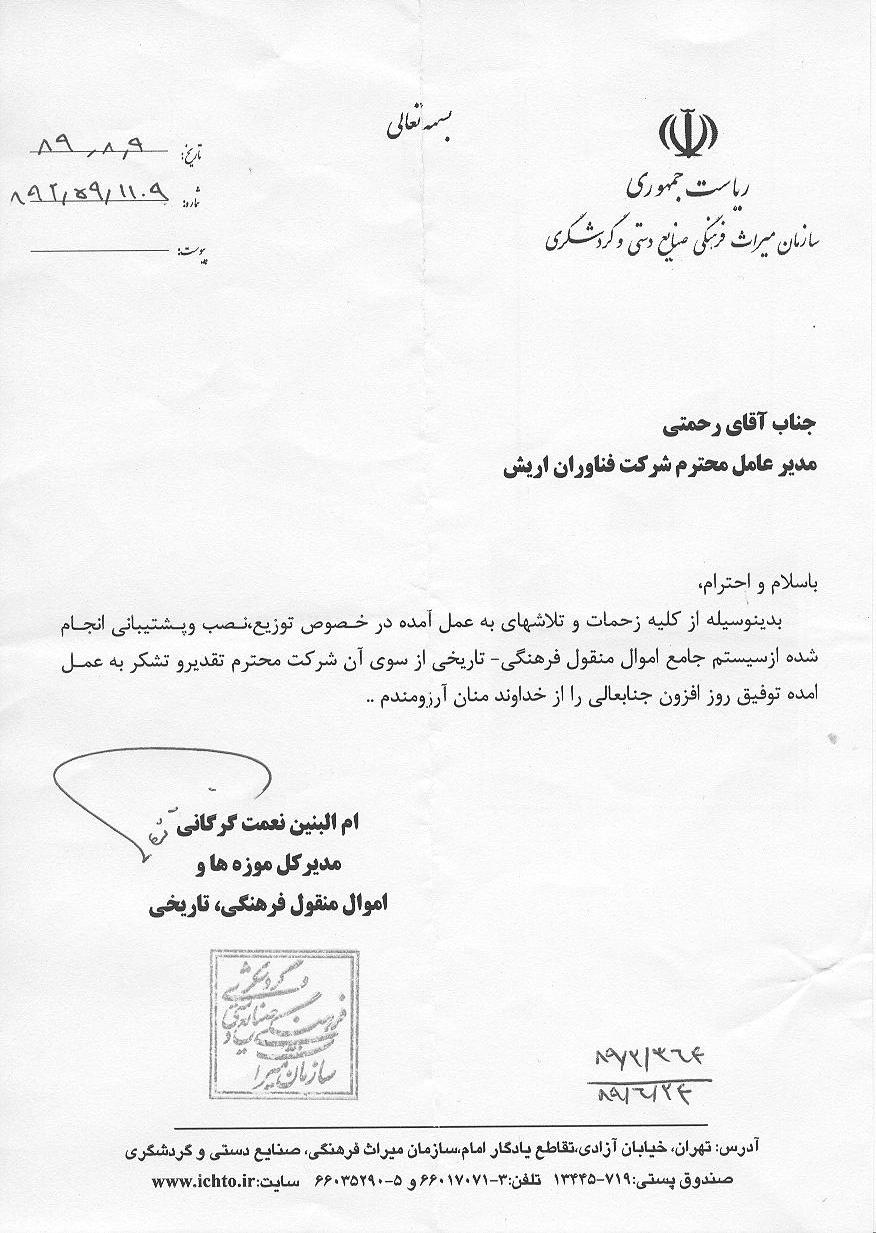 بسمه تعالی
ریاست جمهوری
سازمان میراث فرهنگی صنایع دستی و گردشگری
تاریخ: ۸۹٫۸٫۹
شماره: ۸۹۲/۵۹/۱۱۰۹
پیوست:
جناب آقای رحمتی
مدیر عامل محترم شرکت فناوران اریش
باسلام و احترام،
بدینوسیله از کلیه زحمات و تلاشهای به عمل آمده در خصوص توزیع،نصب وپشتیبانی انجام
شده ازسیستم جامع اموال منقول فرهنگی- تاریخی از سوی آن شرکت محترم تقدیرو تشکر به عمل
امده توفیق روز افزون جنابعالی را از خداوند منان آرزومندم ..
ام البنین نعمت گرگانی
مدیرکل موزه ها و
اموال منقول فرهنگی، تاریخی
و گردشگری
صنایع دستی
فرهنگی
سازمان میراث
آدرس: تهران، خیابان آزادی،تقاطع یادگار امام،سازمان میراث فرهنگی، صنایع دستی و گردشگری
صندوق پستی:۷۱۹-۱۳۴۴۵ تلفن:۳-۶۶۰۱۷۰۷۱و ۵-۶۶۰۳۵۲۹۰ سایت:www.ichto.ir